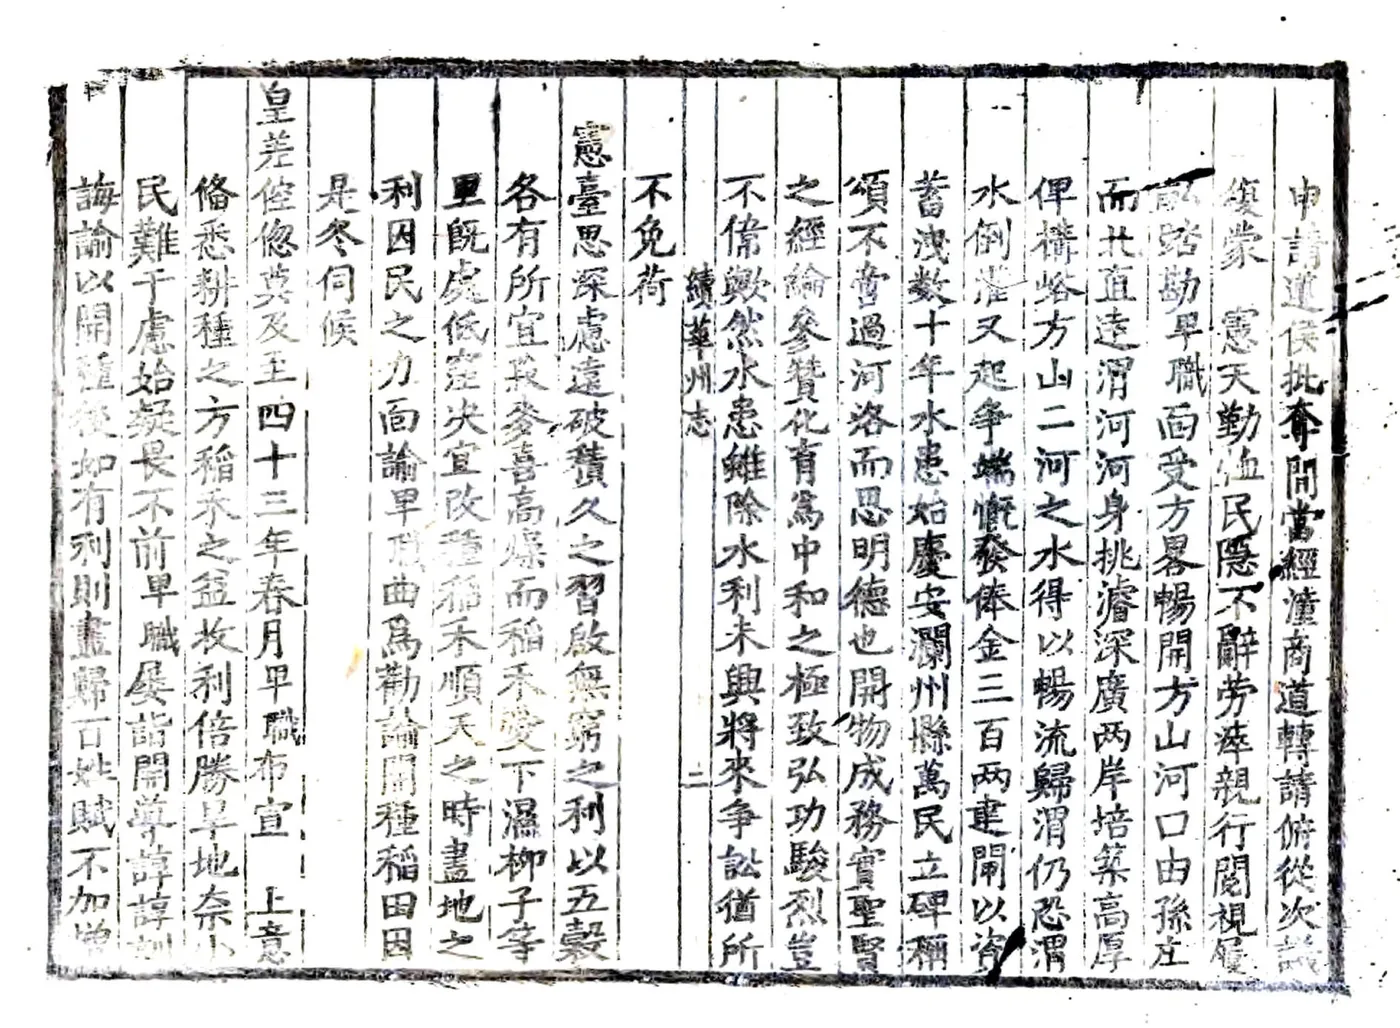 申請道侯批奪間當經潼商道轉請俯從次議
復蒙　憲天勤恤民隱不辭勞瘁親行閱視履
畝踏勘卑職面受方畧暢開方山河口由孫庄
而北直達渭河河身挑濬深廣两岸培築高厚
俾構峪方山二河之水得以暢流歸渭仍恐渭
水倒灌又起爭端慨發俸金三百两建閘以資
蓄洩数十年水患始慶安瀾州縣萬民立碑稱
頌不啻過河洛而思明德也開物成務實聖賢
之經綸參賛化育爲中和之極致弘功駿烈豈
不偉歟然水患雖除水利未興將來争訟猶所
續華州志　二
不免荷
憲臺思深慮遠破積久之習啟無窮之利以五穀
各有所宜菽麥喜高燥而稻禾愛下濕柳子等
里既處低窪决宜改種稻禾順天之時盡地之
利因民之力面諭卑職曲爲勸諭開種稻田因
是冬伺候
皇差倥偬莫及至四十三年春月卑職布宣　上意
俻悉耕種之方稻禾之益收利倍勝旱地奈小
民難于慮始疑畏不前卑職屡詣開導諄諄訓
誨諭以開種後如有利則盡歸百姓賦不加增